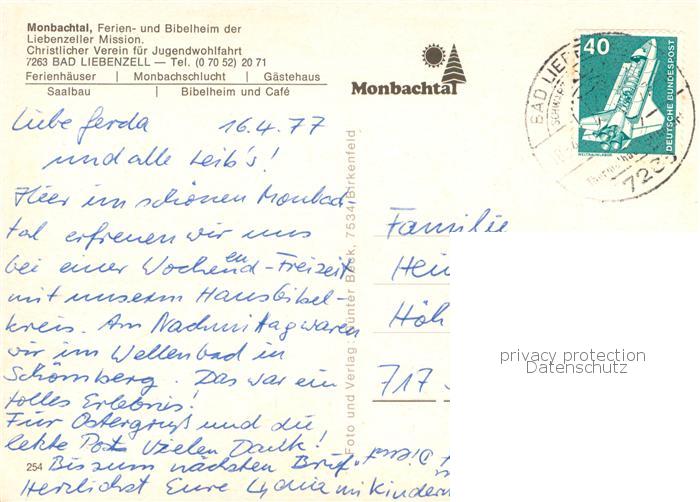 Monbachtal, Ferien- und Bibelheim der
Liebenzeller Mission,
Christlicher Verein für Jugendwohlfahrt
7263 BAD LIEBENZELL — Tel. (0 70 52) 20 71
Ferienhäuser | Monbachschlucht | Gästehaus
Saalbau | Bibelheim und Café
Monbachtal
40
DEUTSCHE BUNDESPOST
WELTRAUMLABOR
BAD LIEBE
7263
Liebe Gerda 16.4.77
und alle Leib's!
Hier im schönen Monbach
tal erfreuen wir uns
bei einer Wochenenden-Freizeit
mit unserm Hausbibel-
kreis. Am Nachmittag waren
wir im Wellenbad in
Schömberg. Das war ein
tolles Erlebnis!
Für Ostergruß und die
letzte Post vielen Dank!
254 Bis zum nächsten Brief
Herzlichst Eure Lydia m Kindern
Foto und Verlag: Günter Beck, 7534 Birkenfeld
Familie
Hei
Höh
717
privacy protection
Datenschutz